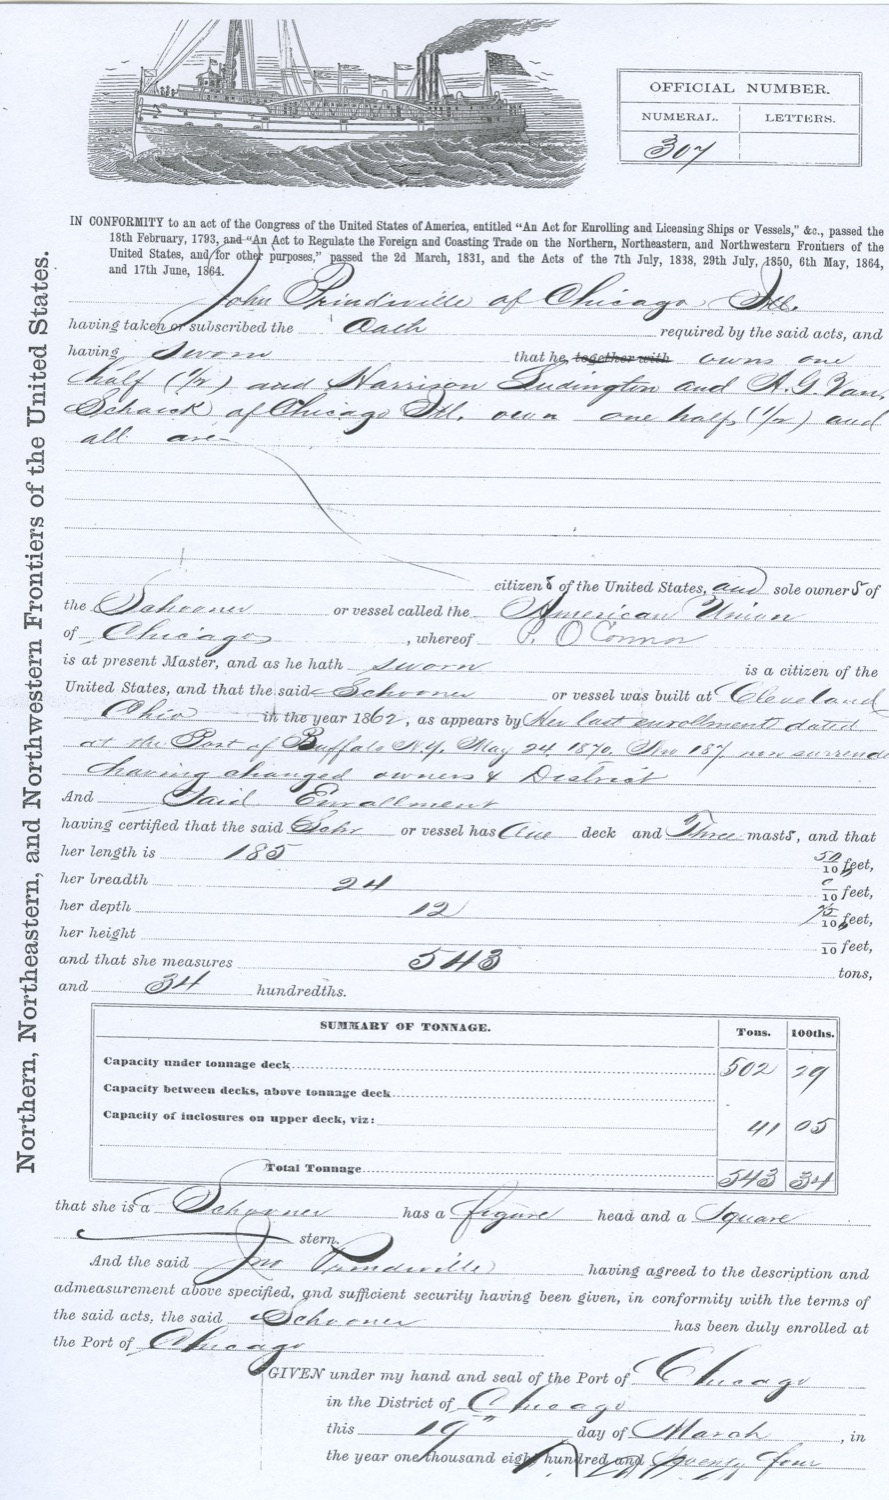 OFFICIAL NUMBER.
NUMERAL. LETTERS.
307
Northern, Northeastern, and Northwestern Frontiers of the United States.
IN CONFORMITY to an act of the Congress of the United States of America, entitled “An Act for Enrolling and Licensing Ships or Vessels,” &c., passed the
18th February, 1793, and “An Act to Regulate the Foreign and Coasting Trade on the Northern, Northeastern, and Northwestern Frontiers of the
United States, and for other purposes,” passed the 2d March, 1831, and the Acts of the 7th July, 1838, 29th July, 1850, 6th May, 1864,
and 17th June, 1864.
John Prindiville of Chicago Ill.
having taken or subscribed the Oath required by the said acts, and
having sworn that he together with owns one
half (1/2) and Harrison Ludington and A.G. Van
Schaick of Chicago Ill. own one half (1/2) and
all are
citizens of the United States, and sole owners of
the Schooner or vessel called the American Union
of Chicago, whereof P. O'Connor
is at present Master, and as he hath sworn is a citizen of the
United States, and that the said Schooner or vessel was built at Cleveland
Ohio in the year 1862, as appears by Her last enrollment dated
at the Port of Buffalo N.Y. May 24 1870, No 187 now surrende
having changed owners & District
And Said Enrollment
having certified that the said Schr or vessel has One deck and Three masts, and that
her length is 185 50/10 feet,
her breadth 24 0/10 feet,
her depth 12 75/10 feet,
her height /10 feet,
and that she measures 543 tons,
and 34 hundredths.
SUMMARY OF TONNAGE. Tons. 100ths.
Capacity under tonnage deck 502 29
Capacity between decks, above tonnage deck
Capacity of inclosures on upper deck, viz: 41 05
Total Tonnage 543 34
that she is a Schooner has a figure head and a Square
stern.
And the said Jno Prindiville having agreed to the description and
admeasurement above specified, and sufficient security having been given, in conformity with the terms of
the said acts, the said Schooner has been duly enrolled at
the Port of Chicago
GIVEN under my hand and seal of the Port of Chicago
in the District of Chicago
this 19th day of March, in
the year one thousand eight hundred and Seventy four